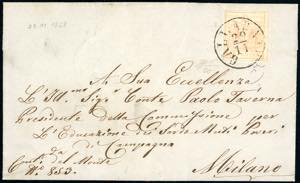 GALLARATE
26
11
A Sua Eccellenza
L'Ill.mo Sigr Conte Paolo Taverna
Presidente della Commissione per
L'Educazione dei Sordo Muti Poveri
di Campagna
Milano
da
Conti del Monte
No 853.